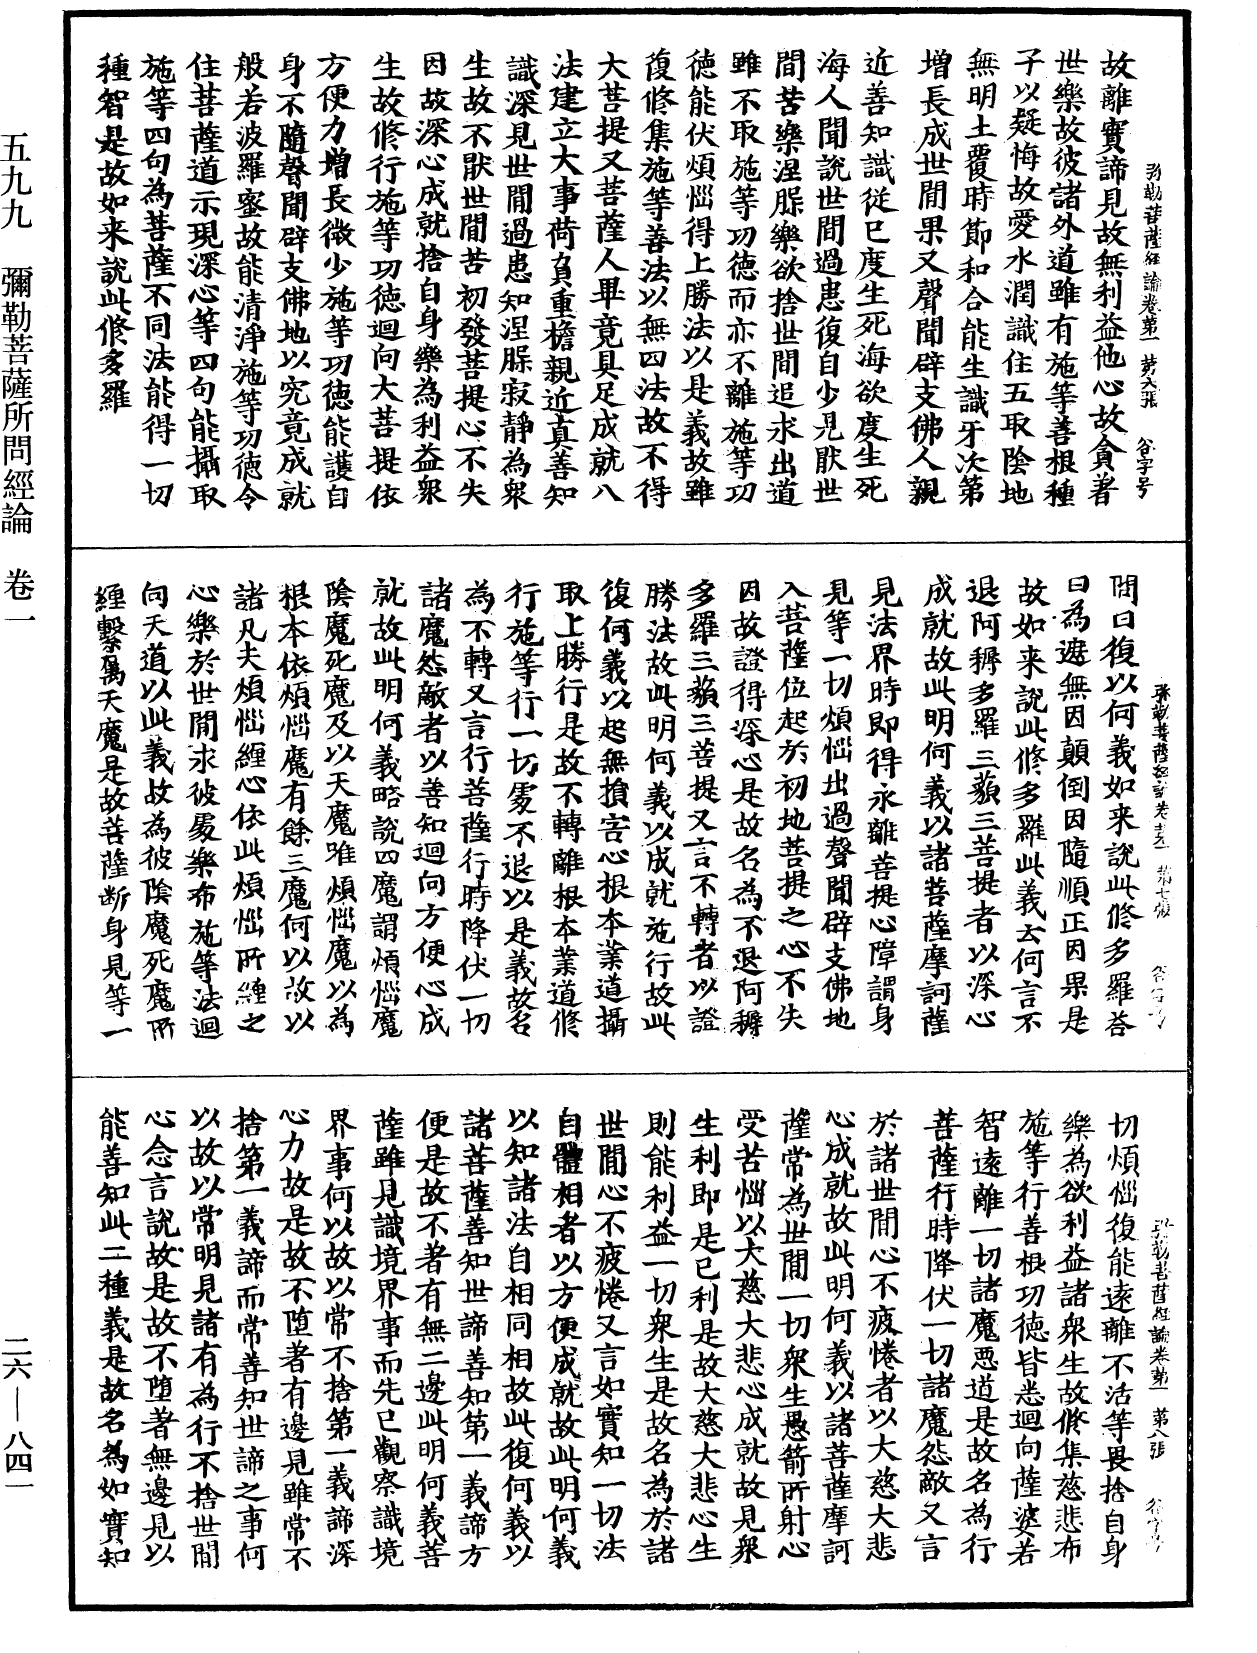 故離實諦見故無利益他心故貪著
世樂故彼諸外道雖有施等善根種
子以疑悔故愛水潤識住五取陰地
無明土覆時節和合能生識牙次第
增長成世間果又聲聞辟支佛人親
近善知識從已度生死海欲度生死
海人聞說世間過患復自少見猒世
間苦樂涅槃樂欲捨世間追求出道
雖不取施等功德而亦不離施等功
德能伏煩惱得上勝法以是義故雖
復修集施等善法以無四法故不得
大菩提又菩薩人畢竟具足成就八
法建立大事荷負重檐親近真善知
識深見世間過患知涅槃寂靜為衆
生故不猒世間苦初發菩提心不失
因故深心成就捨自身樂為利益衆
生故修行施等功德迴向大菩提依
方便力增長微少施等功德能護自
身不隨聲聞辟支佛地以究竟成就
般若波羅蜜故能清淨施等功德令
住菩薩道示現深心等四句能攝取
施等四句為菩薩不同法能得一切
種智是故如来說此修多羅
弥勒菩薩經論卷第一 第六張 谷字号
問曰復以何義如来說此修多羅答
曰為遮無因顛倒因隨順正因果是
故如来說此修多羅此義云何言不
退阿耨多羅三藐三菩提者以深心
成就故此明何義以諸菩薩摩訶薩
見法界時即得永離菩提心障謂身
見等一切煩惱出過聲聞辟支佛地
入菩薩位起於初地菩提之心不失
因故證得深心是故名為不退阿耨
多羅三藐三菩提又言不轉者以證
勝法故此明何義以成就施行故此
復何義以起無損害心根本業道攝
取上勝行是故不轉離根本業道修
行施等行一切處不退以是義故名
為不轉又言行菩薩行時降伏一切
諸魔怨敵者以善知迴向方便心成
就故此明何義略說四魔謂煩惱魔
陰魔死魔及以天魔唯煩惱魔以為
根本依煩惱魔有餘三魔何以故以
諸凡夫煩惱纏心依此煩惱所纏之
心樂於世間求彼處樂布施等法迴
向天道以此義故為彼陰魔死魔所
纏繫屬天魔是故菩薩断身見等一
切煩惱復能遠離不活等畏捨自身
樂為欲利益諸衆生故修集慈悲布
施等行善根功德皆悉迴向薩婆若
智遠離一切諸魔惡道是故名為行
菩薩行時降伏一切諸魔怨敵又言
於諸世間心不疲惓者以大慈大悲
心成就故此明何義以諸菩薩摩訶
薩常為世間一切衆生愚箭所射心
受苦惱以大慈大悲心成就故見衆
生利即是己利是故大慈大悲心生
則能利益一切衆生是故名為於諸
世間心不疲惓又言如實知一切法
自體相者以方便成就故此明何義
以知諸法自相同相故此復何義以
諸菩薩善知世諦善知第一義諦方
便是故不著有無二邊此明何義菩
薩雖見識境界事而先已觀察識境
界事何以故以常不捨第一義諦深
心力故是故不墮著有邊見雖常不
捨第一義諦而常善知世諦之事何
以故以常明見諸有為行不捨世間
心念言說故是故不墮著無邊見以
能善知此二種義是故名為如實知
弥勒菩薩經論卷第一 第八張
五九九 彌勒菩薩所問經論 卷一
二六—八四一